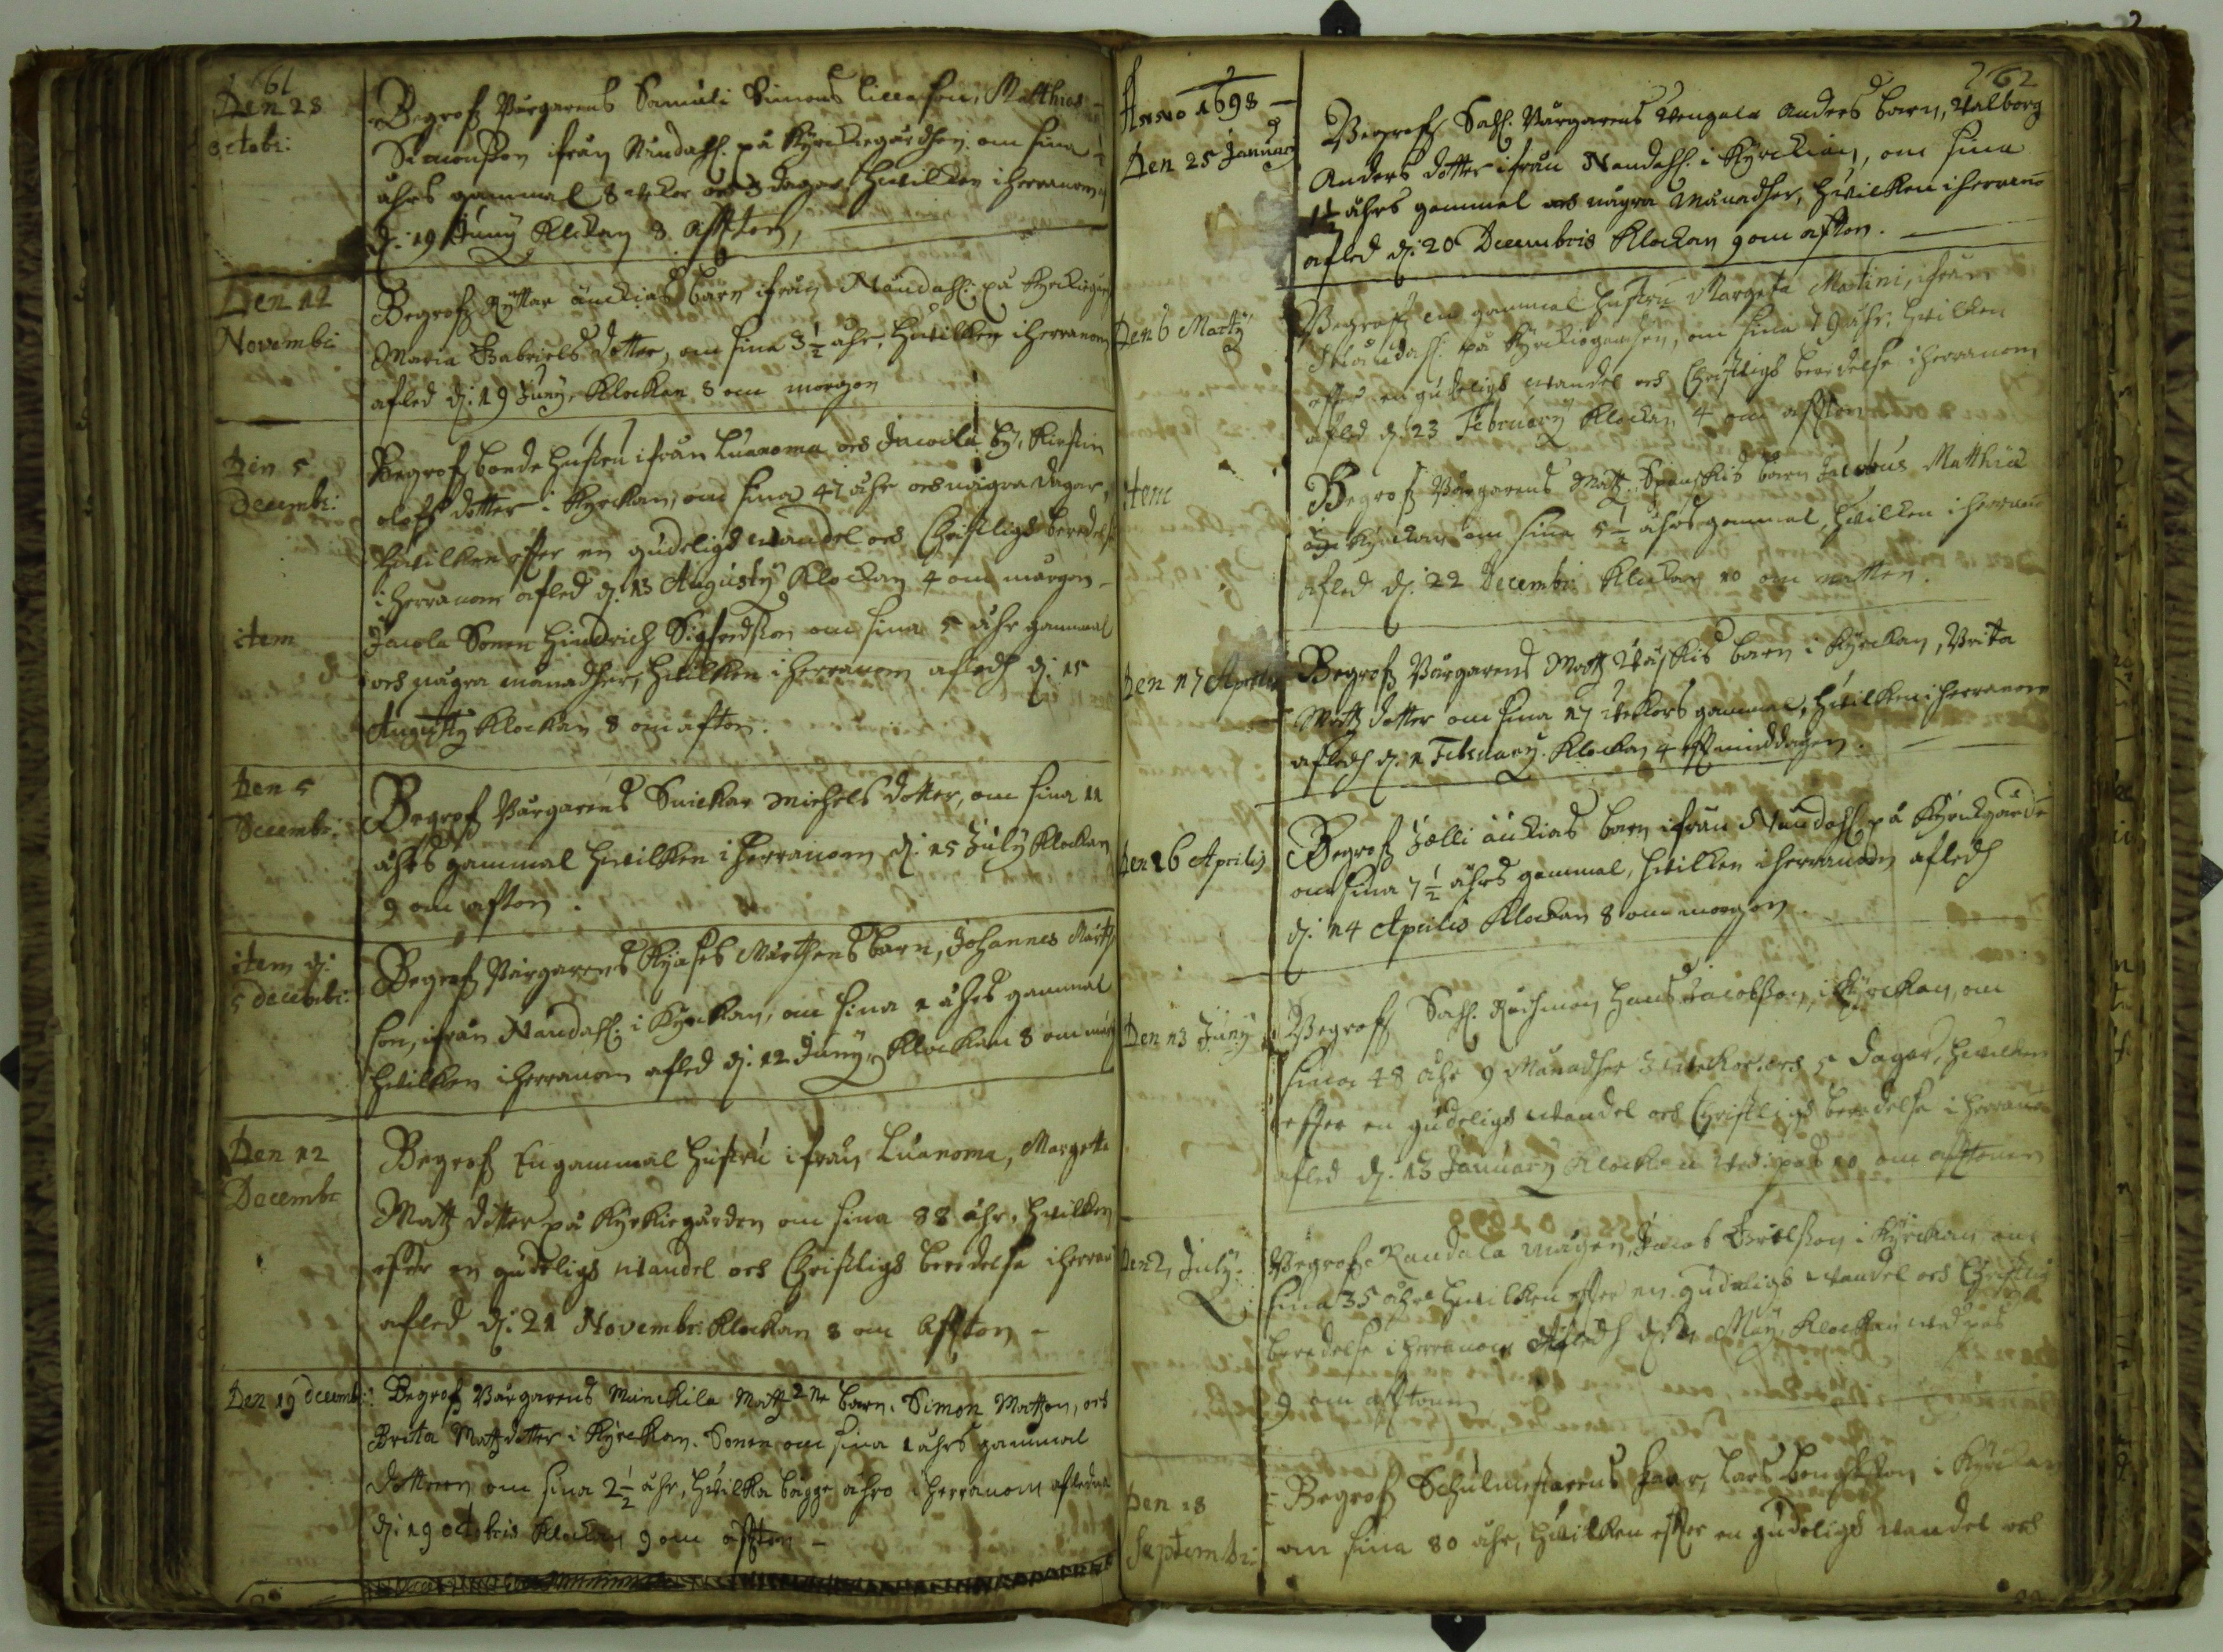 61
Den 28
octobr:
Begrofz Bårgarens Samuli Simons lilla son, Matthias
Simonsson ifrån Nåndahl: på Kyrkiegårdhen om sina
åhrs gammal 8 wekor och 3 dagar hwilken i herranom
d: 19 Juny Klockan 3 Affton,
Den 12
Novembr:
Begrofz Ryttar änckias barn ifrån Nåndahl: på Kyrckiegård
Maria Gabriels dotter, om sina 3 1/2 åhr, hwilken i herranom
afled d: 19 Juny, Klockan 8 om morgon
Den 5
Decembr:
Begrofz bonde hustru ifrån Luanoma och Jacola by, Kirstin
olofz dotter i Kyrckan, om sina 47 åhr och några dagar,
hwilken efter en gudeligh wandel och Christligh beredelse
i herranom afled d: 13 Augusty Klockan 4 om morgon
item
Jacola Sonen Hindrich Sigfredsson om sina 5 åhr gammal
och några månadher, hwilken i herranom afledh d: 15
Augusty Klockan 8 om afton.
Den 5
Decembr:
Begrofz Bårgarens Snickar Michels dotter, om sina 11
åhrs gammal hwilken i herranom d: 15 July Klockan
9 om afton.
item d:
5 decembr:
Begrofz Bårgarens Mårthens barn, Johannes Mårth
son, ifrån Nåndahl: i Kyrckan, om sina 2 åhrs gammal
hwilken i herranom afled d: 12 Juny, Klockan 8 om morg
Den 12
Decembr
Begrofz En gammal hustru ifrån Luanoma, Margetta
Matz dotter på Kyrkiegården om sina 88 åhr, hwilken
efter en gudeligh wandel och Christligh beredelse i herran
afled d: 21 Novembr: Klockan 8 om Affton
Den 19 decembr:
Begrofz Bårgarens Munckila Matz 2ne barn, Simon Matzon, och
Brita Matzdotter i Kyrckan. Sonen om sina 1 åhrs gammal
dotteren om sina 2 1/2 åhr, hwilka bägge åhro i herranom afledna
d: 19 octobris Klockan 9 om affton
262
Anno 1698
Den 25 Januarÿ
Begrofz Sahl: Bårgarens Anders barn, Valborg
Anders dotter ifrån Nåndahl: i Kyrckian, om sina
1 1/2 åhrs gammal och några Månadher, hwilken i herrano
afled d: 20 Decembris Klockan 9 om afton.
Den 6 Marty
Begrofz en gammal hustru Margeta Martini, ifrån
Nåndahl: på Kyrckiogården, om sina 79 åhr, hwilken
efter en gudeligh wandel och Christligh beredelse i herranom
afled d: 23 February Klockan 4 om affton
item
Begrofz Bårgarens Matz Spenskis barn Jacobus Matthiæ
Kyrckan om sina 5 1/2 åhrs gammal, hwilken i herrano
afled d: 22 Decembr: Klockan 10 om natten.
Den 17 Aprilis
Begrofz Bårgarens Matz barn i Kyrckan, Brita
Matz dotter om sina 17 wekors gammal, hwilken i herranom
afledh d: 2 February. Klockan 4 efftmiddagen.
Den 26 Aprilis
Begrofz Jälli änckias barn ifrån Nåndahl: på Kyrckgården
om sina 7 1/2 åhrs gammal, hwilken i herranom afledh
d: 14 Aprilis Klockan 8 om morgon.
Den 13 Juny
Begrofz Sahl: Rådhman Hans Jacobsson, i Kyrckan, om
sina 48 åhr 9 Månadher 3 wekor och 5 dagar, hwilken
efter en gudeligh wandel och Christligh beredelse i herrano
afled d: 13 January Klockan wed pass 10 om afftonen
Den 2 July:
Begrofz Randala mågen, Jacob Grelsson i Kyrckan, om
sina 35 åhr hwilken efter en gudeligh wandel och Christligh
beredelse i herranom Afledh d: 21 May Klockan wed pass
9 om afftonen
Den 18
Septembr:
Begrofz Schulmestarens faar, Lars Bengtsson i Kyrckan
om sina 80 åhr, hwilken efter en gudeligh wandel och